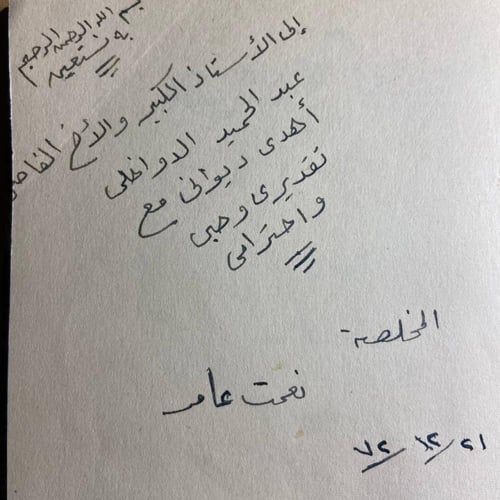 بسم الله الرحمن الرحيم
به نستعين
إلى الأستاذ الكبير والأخ الفاضل
عبد الحميد الدواخلى
أهدى ديوانى مع
تقديرى وحبى
واحترامى
المخلصة
نعمت عامر
٢١/١٢/٧٢